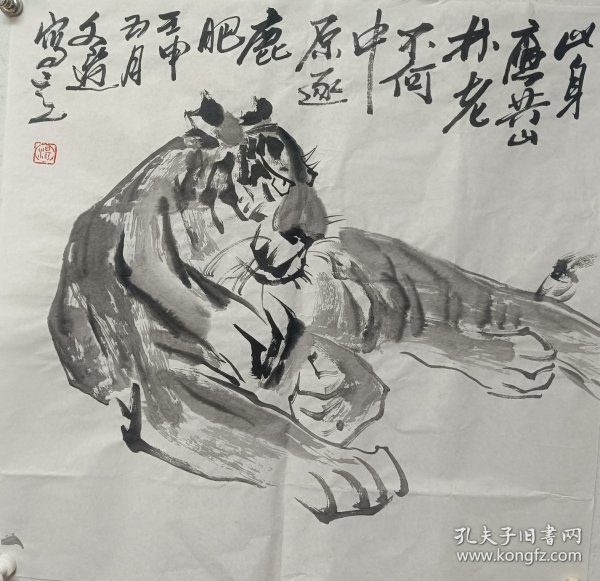 此身
應共山
林老
不何
中
原逐
鹿
肥
壬申
五月
文
寫
孔夫子旧书网
www.kongfz.com